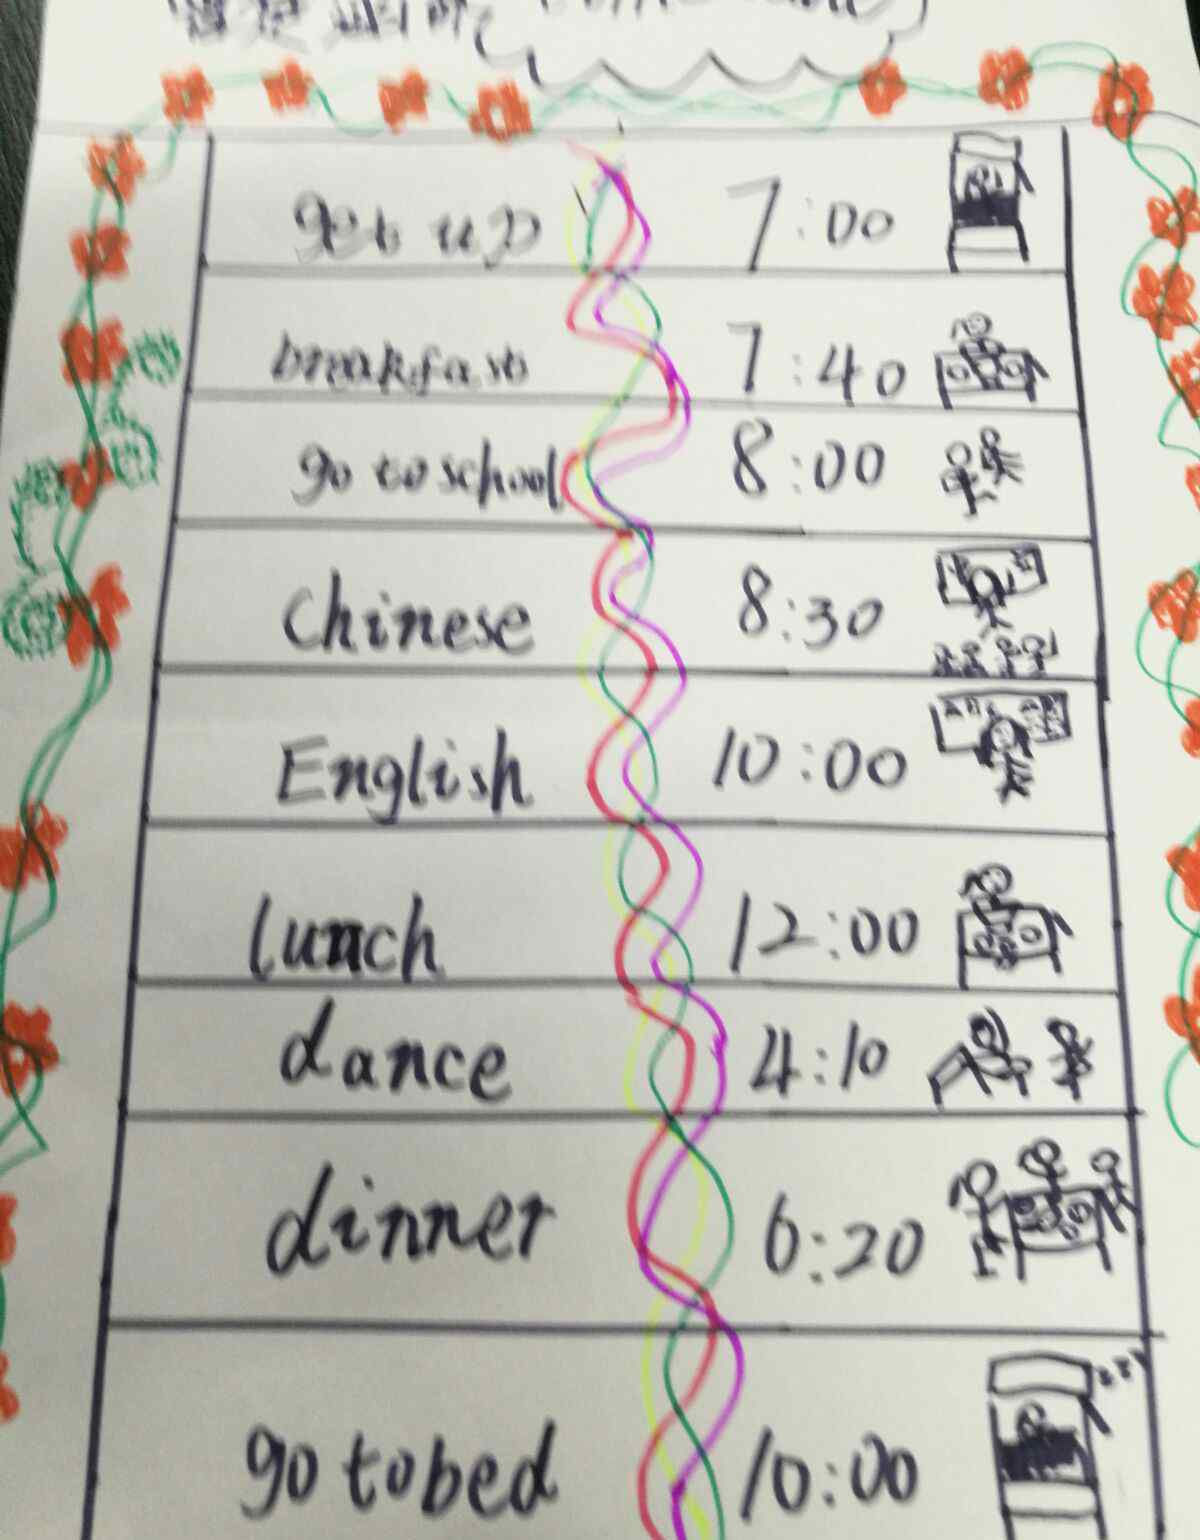 get up 7:00
breakfast 7:40
go to school 8:00
Chinese 8:30
English 10:00
lunch 12:00
dance 4:10
dinner 6:20
go to bed 10:00